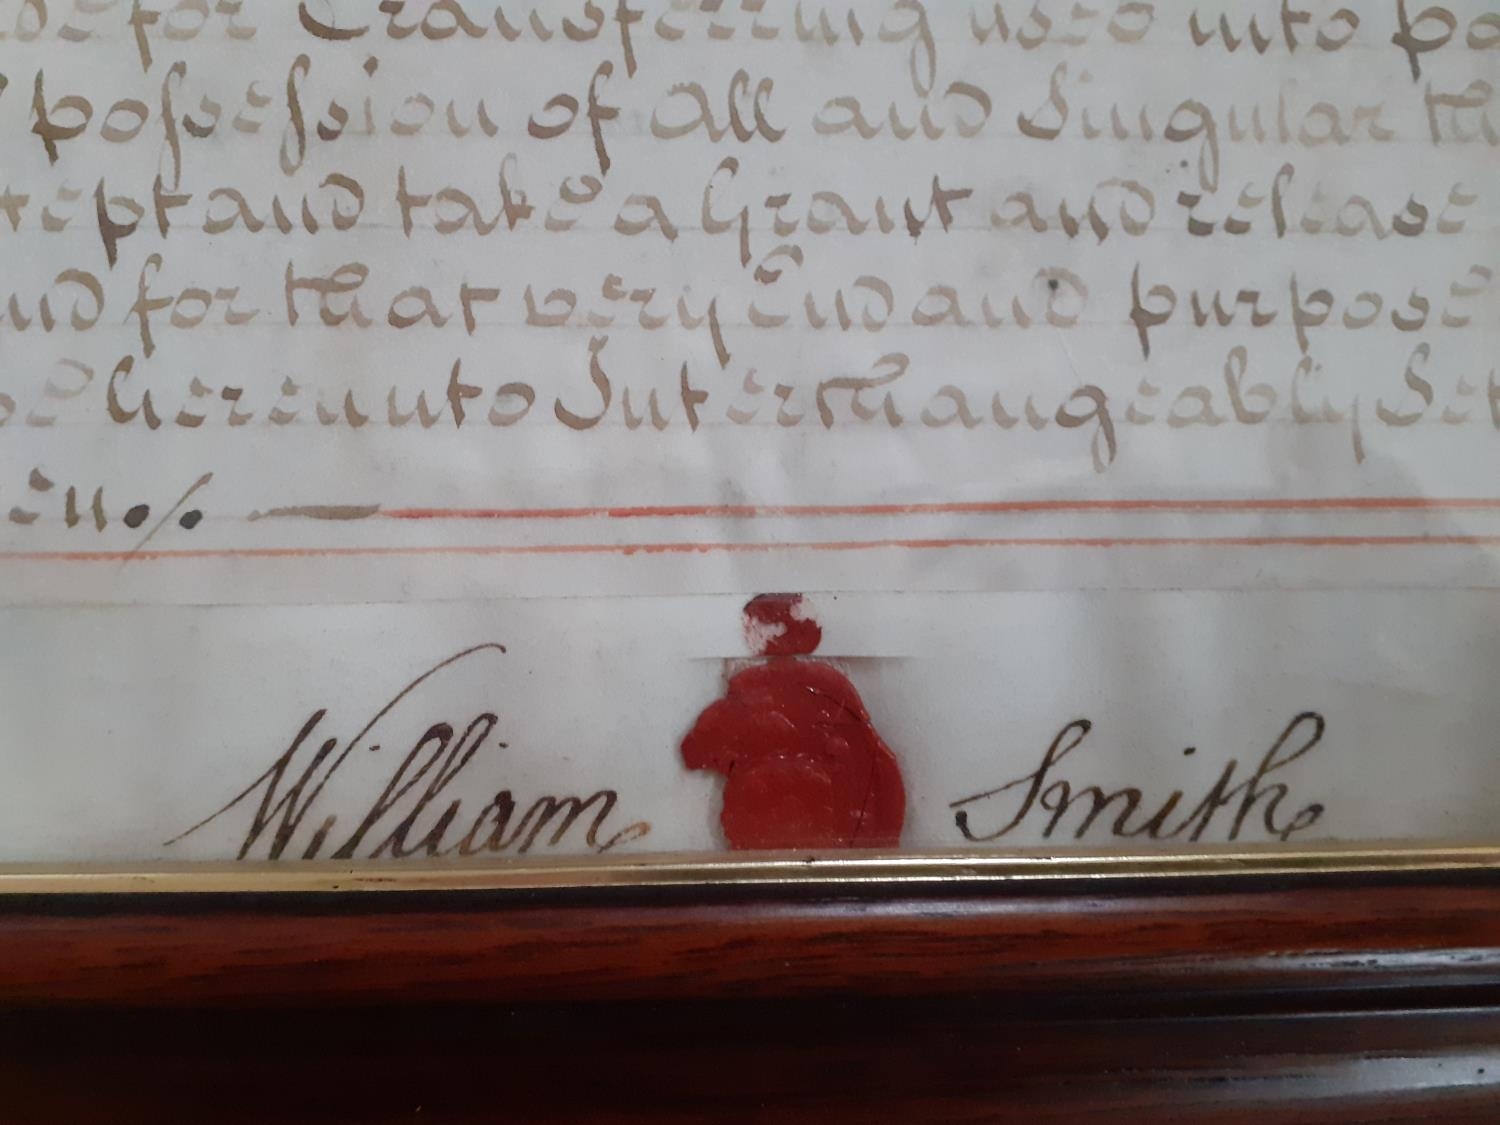 for Transferring uses into
possession of All and Singular
and take a Grant and release
for that very End and purpose
hereunto Interchangeably Set
William Smith